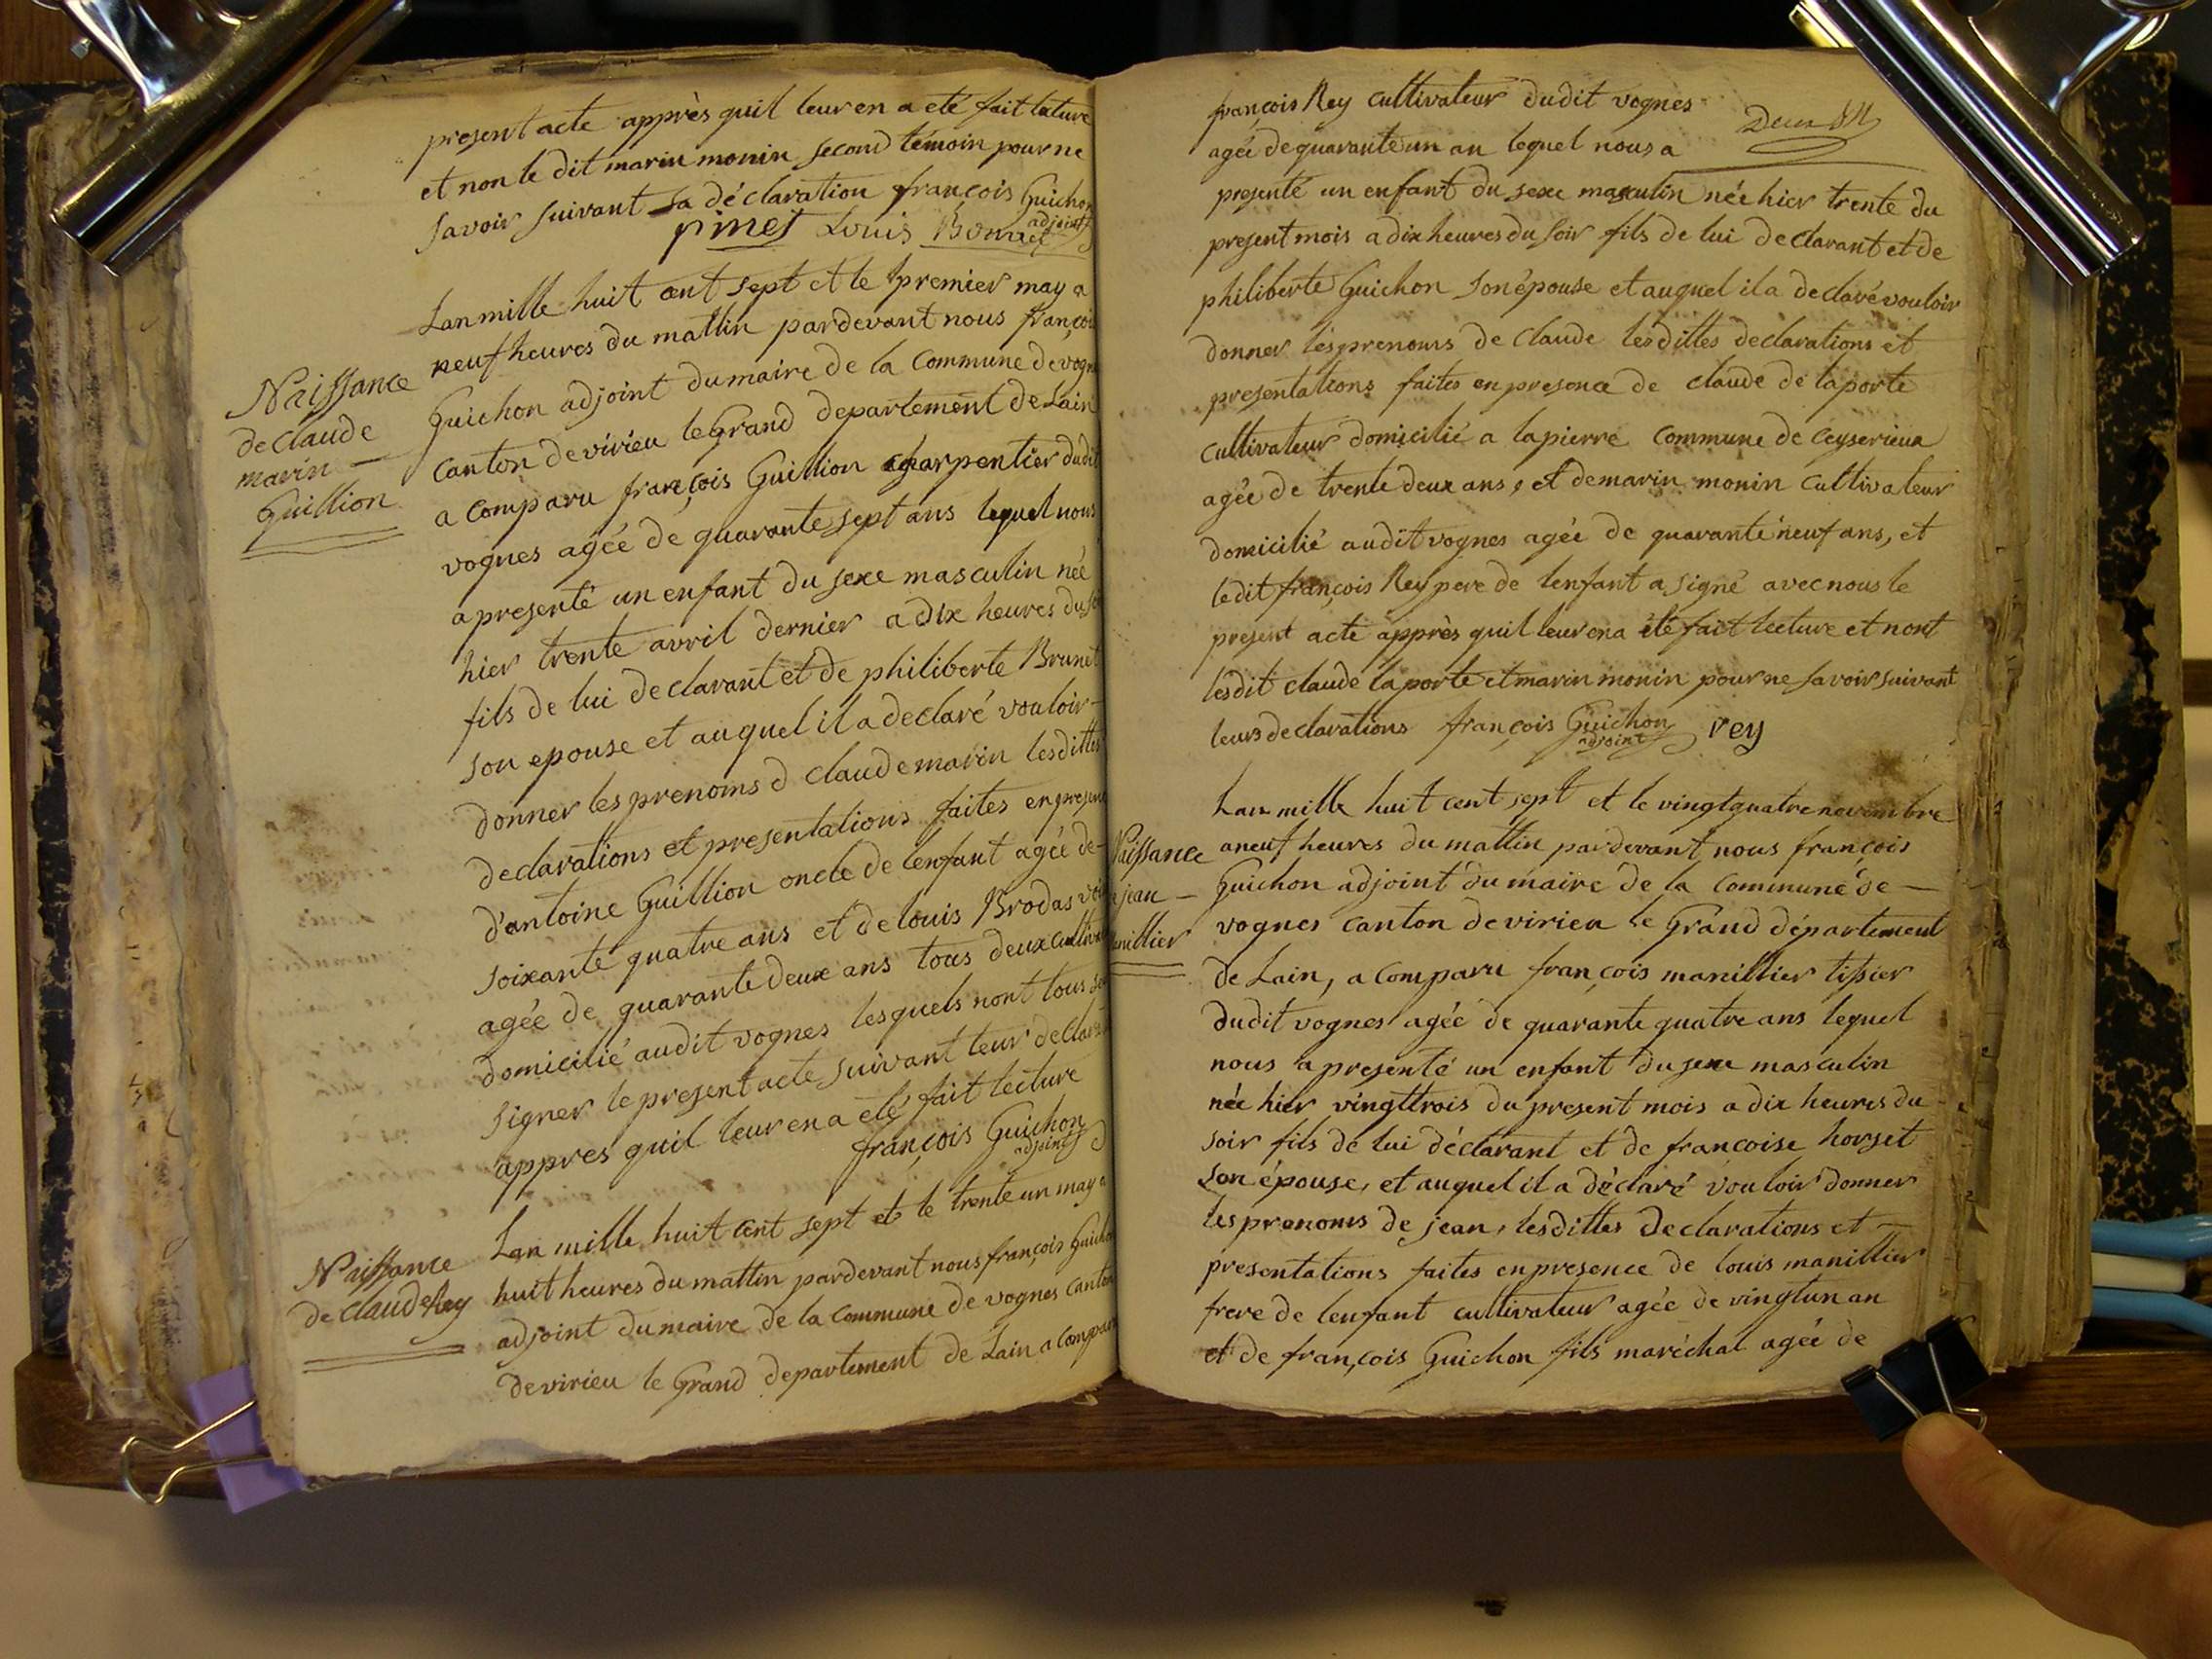 present acte apprès quil leur en a eté fait lature
et non le dit marin monin second témoin pour ne
savoir suivant sa déclaration françois Guichon
adjoint
pinet Louis
Lan mille huit cent sept et le premier may a
neuf heures du mattin pardevant nous françois
Guichon adjoint du maire de la Commune de vogn
Canton de virieu le Grand departement de Lain
a Comparu françois Guillion charpentier dudit
vognes agée de quarante sept ans lequel nous
a presenté un enfant du sexe masculin née
hier trente avril dernier a dix heures du so
fils de lui declarant et de philiberte Brunet
son epouse et auquel il a declaré vouloir
donner les prenoms d claude marin lesdittes
declarations et presentations faites en presen
d'antoine Guillion oncle de lenfant agée de
soixante quatre ans et de louis Brodas voi
agée de quarante deux ans tous deux cultiva
domicilié audit vognes lesquels nont tous
signer le present acte suivant leur declar
appres quil leur en a eté fait lecture
françois Guichon
adjoint
Naissance
de Claude
marin
Guillion
Lan mille huit cent sept et le trente un may a
huit heures du mattin pardevant nous françois Guicho
adjoint du maire de la Commune de vognes Canton
de virieu le Grand departement de Lain a Compar
Naissance
de Claude Rey
françois Rey Cultivateur dudit vognes
agée de quarante un an lequel nous a
presenté un enfant du sexe masculin née hier trente du
present mois a dix heures du soir fils de lui declarant et de
philiberte Guichon son épouse et auquel il a declaré vouloir
donner les prenoms de Claude lesdittes declarations et
presentations faites en presence de claude de laporte
Cultivateur domicilié a lapierre Commune de Ceyserieux
agée de trente deux ans, et de marin monin Cultivateur
domicilié audit vognes agée de quarante neuf ans, et
ledit françois Rey pere de lenfant a signé avec nous le
present acte apprès quil leur en a été fait lecture et nont
lesdit claude laporte et marin monin pour ne savoir suivant
leurs declarations françois Guichon rey
adjoint
Lan mille huit cent sept et le vingt quatre novembre
a neuf heures du mattin pardevant nous françois
Guichon adjoint du maire de la Commune de
vognes Canton de virieu le Grand département
de Lain, a Comparu françois manillier tissier
dudit vognes agée de quarante quatre ans lequel
nous a presenté un enfant du sexe masculin
née hier vingt trois du present mois a dix heures du
soir fils de lui déclarant et de francoise horset
son épouse, et auquel il a déclaré vouloir donner
les prenoms de jean, lesdittes declarations et
presentations faites en presence de louis manillier
frere de lenfant cultivateur agée de vingt un an
et de françois Guichon fils maréchal agée de
Naissance
e jean
anillier